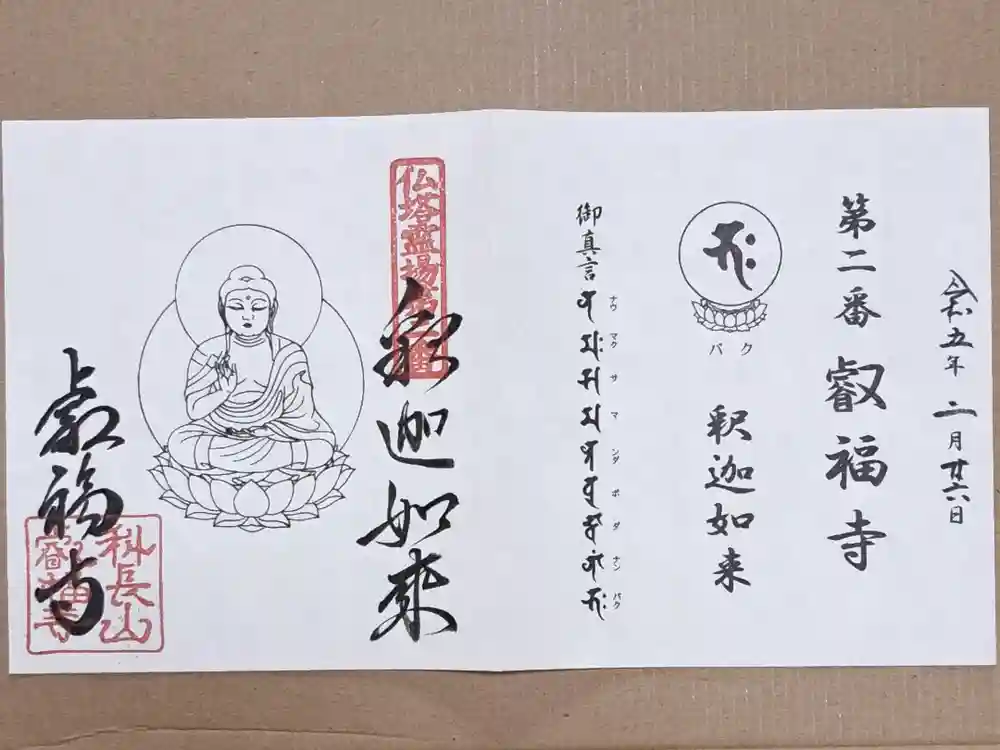 令和五年 二月廿六日
第二番 叡福寺
バク
釈迦如来
御真言
ナウ マク サ マ ンダ ボ ダ ナン バク
仏塔靈場第二番
釈迦如来
叡福寺
科長山
叡福寺